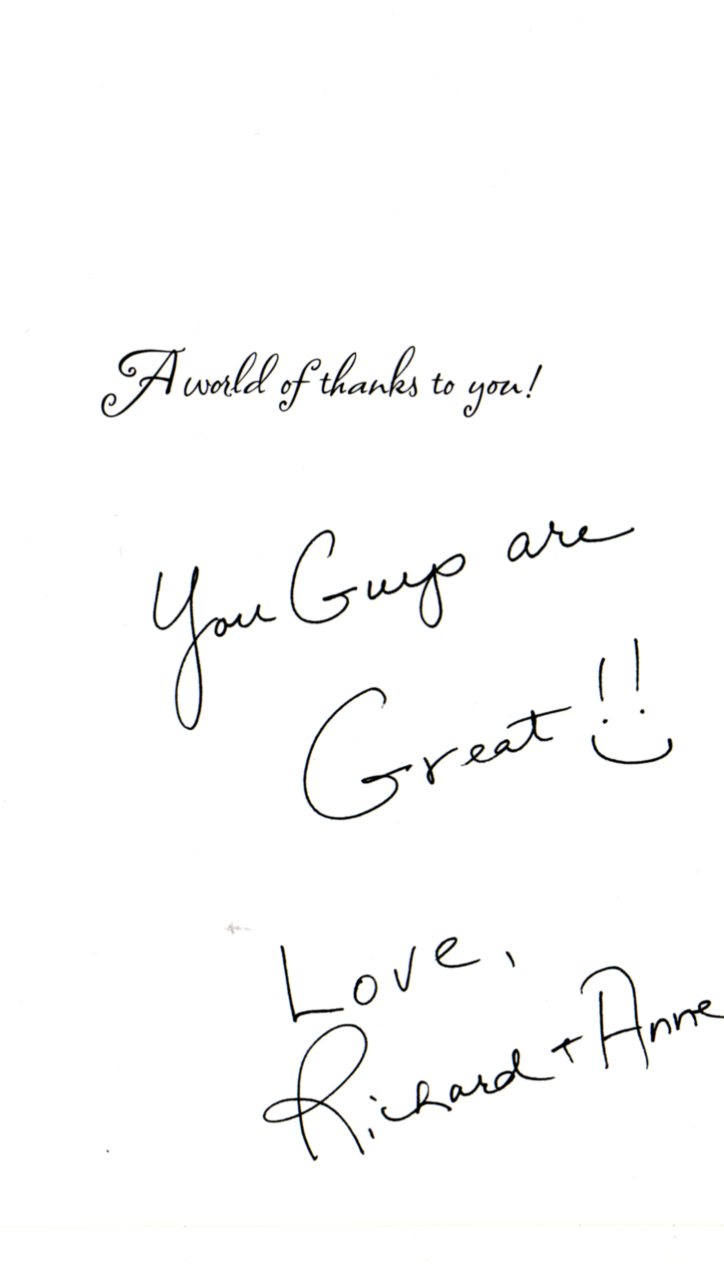 A world of thanks to you!
You Guys are
Great!!
Love,
Richard + Anne